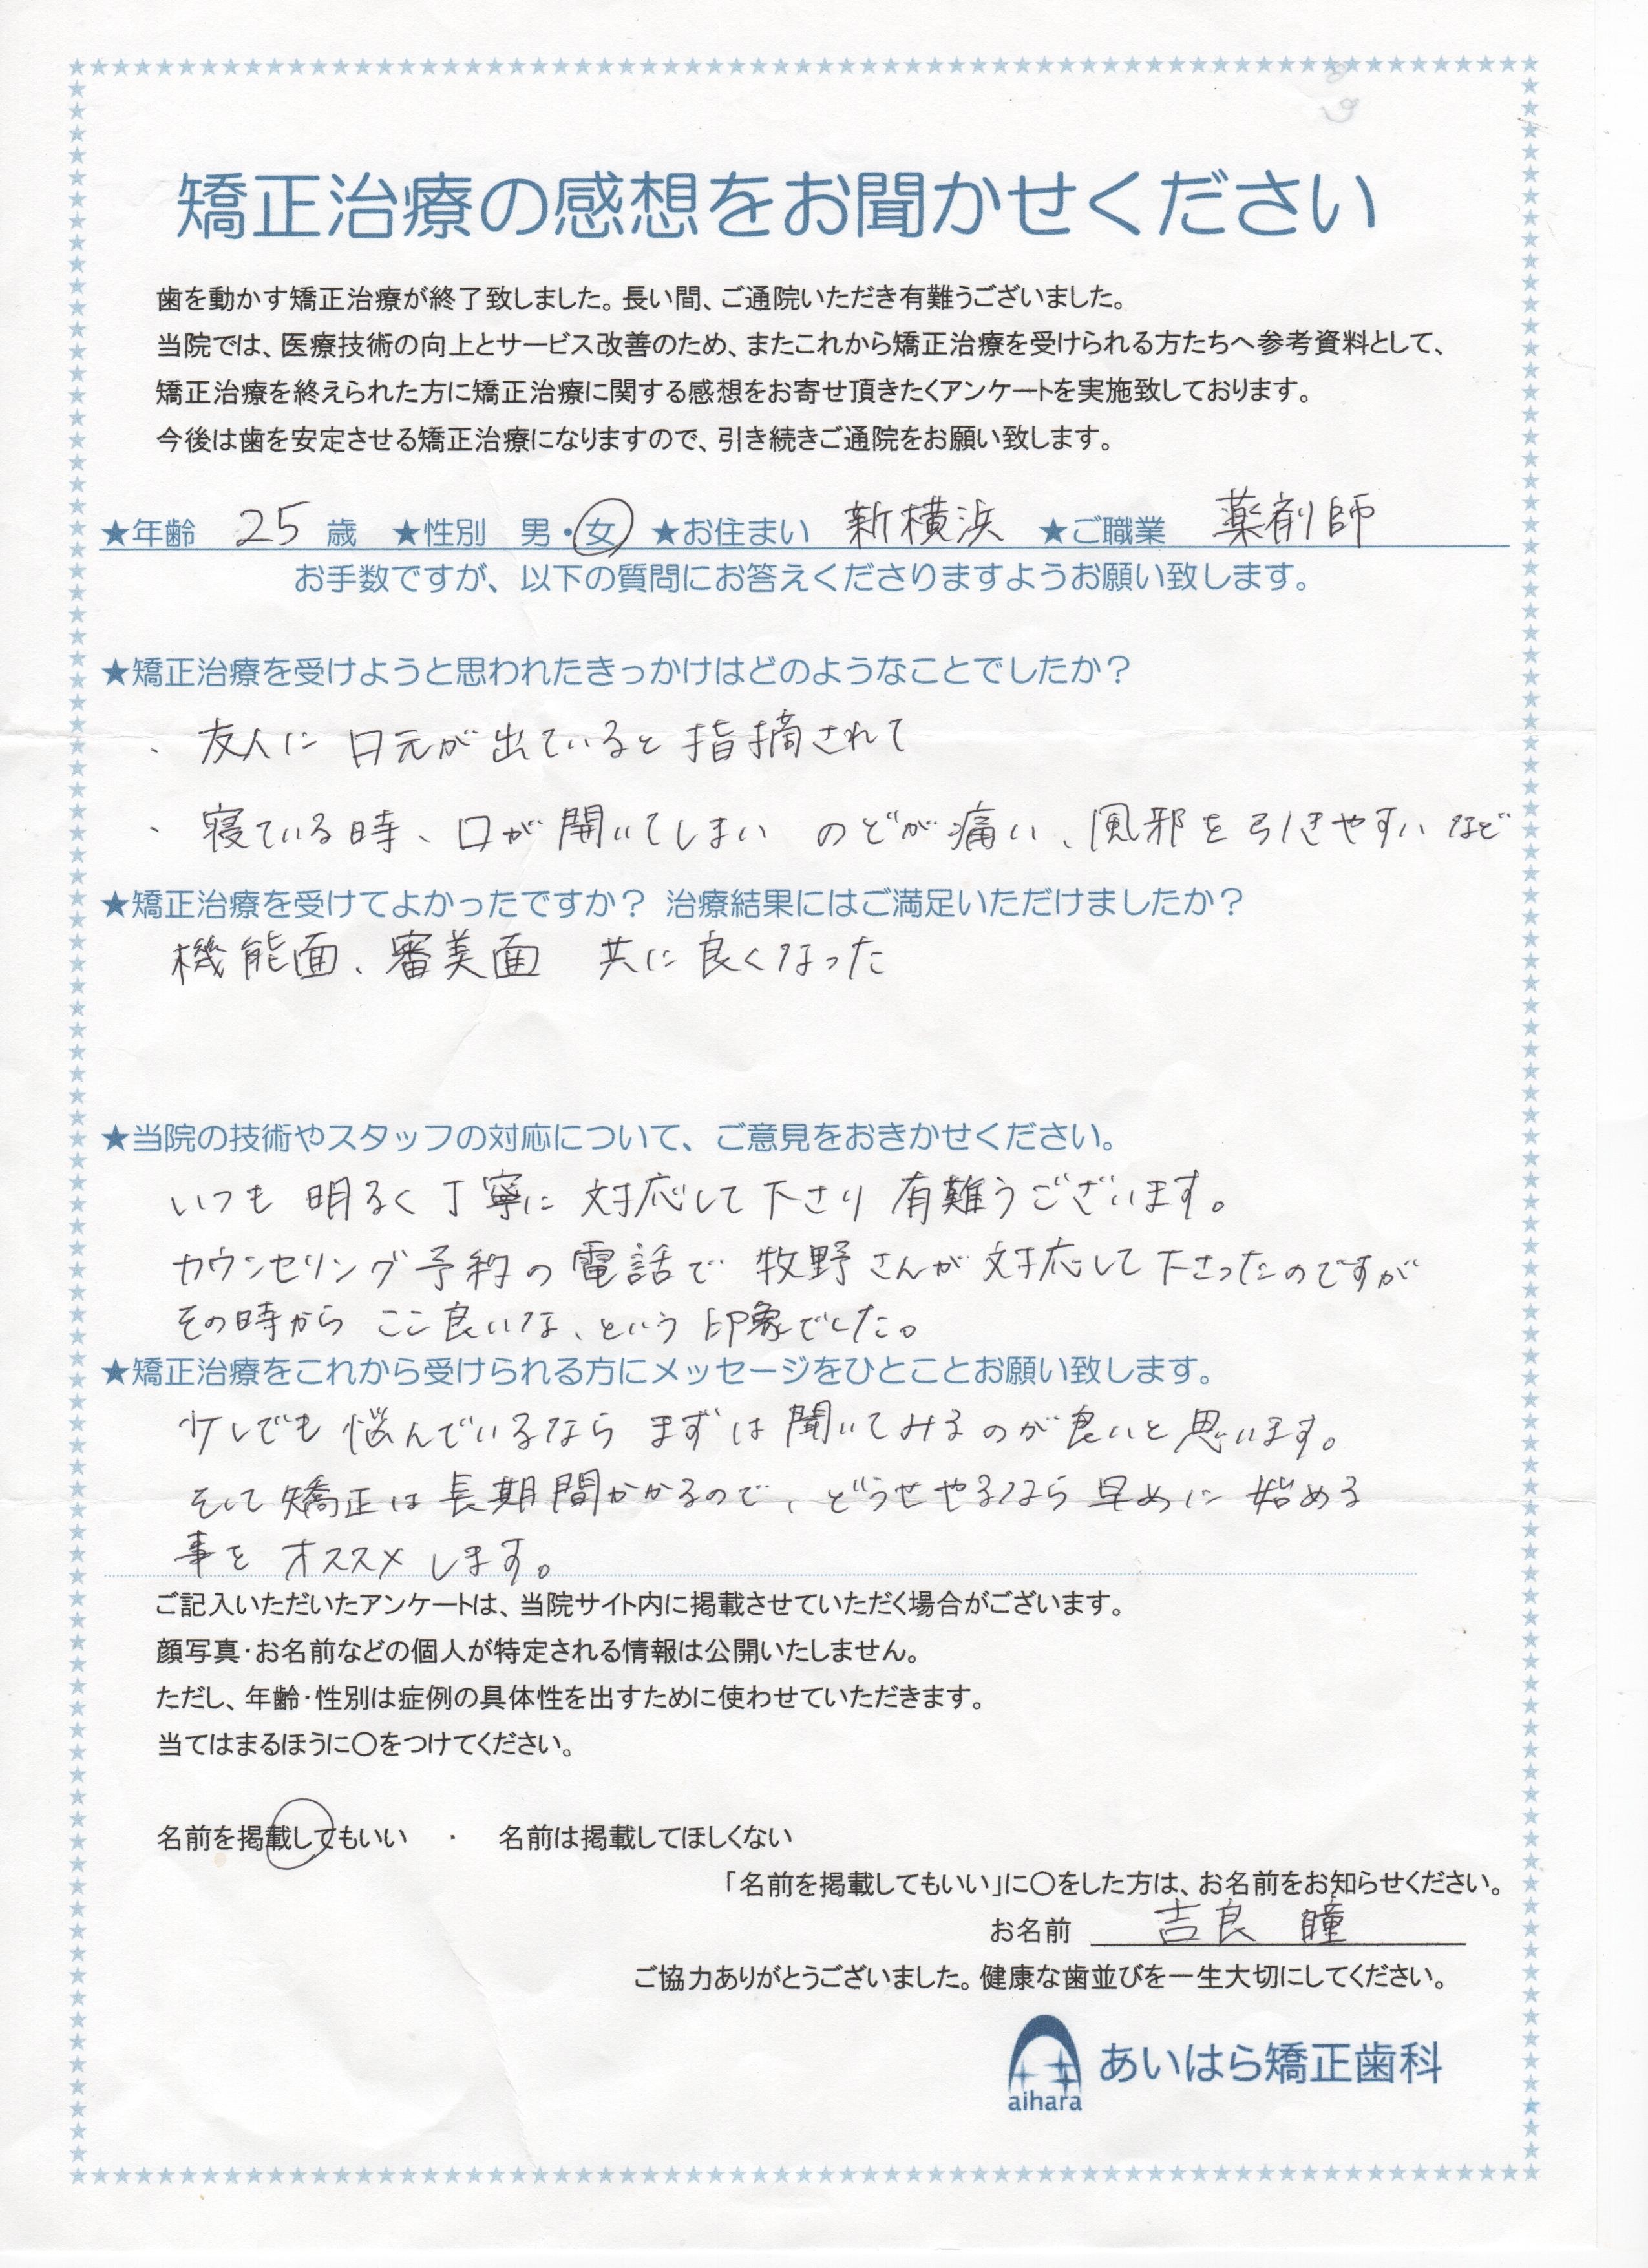 矯正治療の感想をお聞かせください
歯を動かす矯正治療が終了致しました。長い間、ご通院いただき有難うございました。
当院では、医療技術の向上とサービス改善のため、またこれから矯正治療を受けられる方たちへ参考資料として、
矯正治療を終えられた方に矯正治療に関する感想をお寄せ頂きたくアンケートを実施致しております。
今後は歯を安定させる矯正治療になりますので、引き続きご通院をお願い致します。
★年齢 25 歳 ★性別 男・女 ★お住まい 新横浜 ★ご職業 薬剤師
お手数ですが、以下の質問にお答えくださりますようお願い致します。
★矯正治療を受けようと思われたきっかけはどのようなことでしたか？
・友人に口元が出ていると指摘されて
・寝ている時、口が開いてしまい のどが痛い、風邪を引きやすい など
★矯正治療を受けてよかったですか？ 治療結果にはご満足いただけましたか？
機能面、審美面 共に良くなった
★当院の技術やスタッフの対応について、ご意見をおきかせください。
いつも明るく丁寧に対応して下さり有難うございます。
カウンセリング予約の電話で牧野さんが対応して下さったのですが
その時からここ良いな、という印象でした。
★矯正治療をこれから受けられる方にメッセージをひとことお願い致します。
少しでも悩んでいるならまずは聞いてみるのが良いと思います。
そして矯正は長期間かかるので、どうせやるなら早めに始める
事をオススメします。
ご記入いただいたアンケートは、当院サイト内に掲載させていただく場合がございます。
顔写真・お名前などの個人が特定される情報は公開いたしません。
ただし、年齢・性別は症例の具体性を出すために使わせていただきます。
当てはまるほうに〇をつけてください。
名前を掲載してもいい ・ 名前は掲載してほしくない
「名前を掲載してもいい」に〇をした方は、お名前をお知らせください。
お名前 吉良 瞳
ご協力ありがとうございました。健康な歯並びを一生大切にしてください。
aihara あいはら矯正歯科